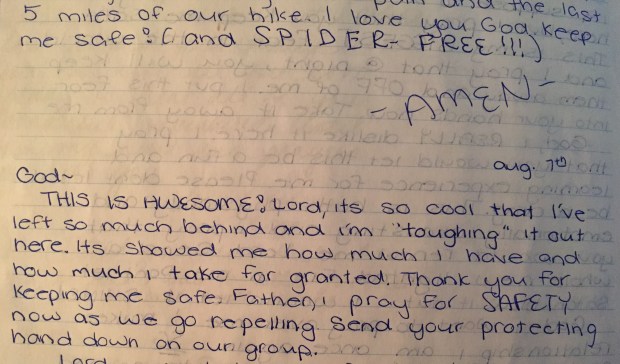 pain and the last
5 miles of our hike. I love you God, keep
me safe! (and SPIDER-FREE!!!)
-AMEN-
aug. 7th
God~
THIS IS AWESOME! Lord, its so cool that I've
left so much behind and i'm "toughing" it out
here. Its showed me how much I have and
how much i take for granted. Thank you for
keeping me safe. Father, i pray for SAFETY
now as we go repelling. Send your protecting
hand down on our group.
Lord